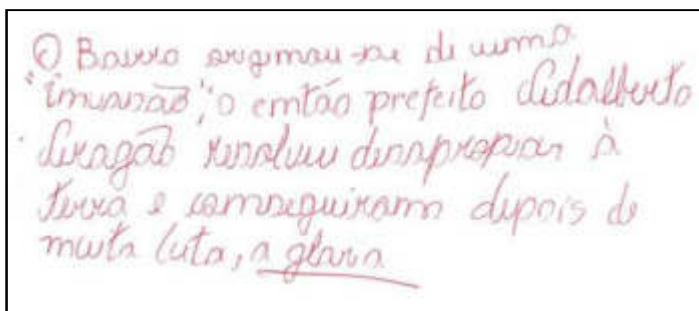 O Bairro origmou-se de uma
"imvasão", o emtão prefeito Aldalberto
Aragão resolveu desapropiar à
terra e comseguiram depois de
muita luta, a gleba